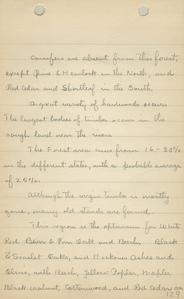 Conifers are absent from this forest,
except Pine & Hemlock in the North, and
Red Cedar and Shortleaf in the South.
A great variety of hardwoods occurs.
The largest bodies of timber occur in the
rough land near the rivers.
The Forest area runs from 16-30%
in the different states, with a probable average
of 25%.
Although the virgin timber is mostly
gone, many old stands are found.
This region is the optimum for White
Red Burr & Post Oak and Black
& Scarlet Oaks, and Hickories Ashes and
Elms, with Beech, Yellow Poplar, Maples
Black walnut, Cottonwood, and Red Cedars
129